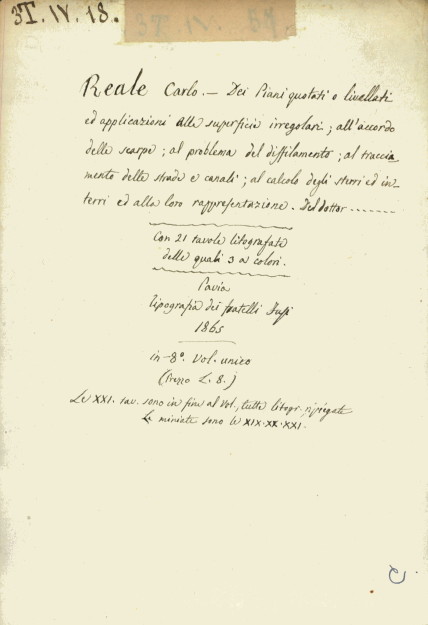 3T. IV. 18.
3T. IV. 57.
Reale Carlo. — Dei Piani quotati o livellati
ed applicazioni alle superficie irregolari; all'accordo
delle scarpe; al problema del diffilamento; al traccia
mento delle strade e canali; al calcolo degli sterri ed in=
terri ed alla loro rappresentazione. Del Dottor .......
Con 21 tavole litografate
delle quali 3 a colori.
Pavia
tipografia dei fratelli Fusi
1865
in-8°. Vol. unico
(Prezzo L. 8.)
Le XXI. tav. sono in fine al Vol., tutte litogr. ripiegate
Le miniate sono le XIX. XX. XXI.